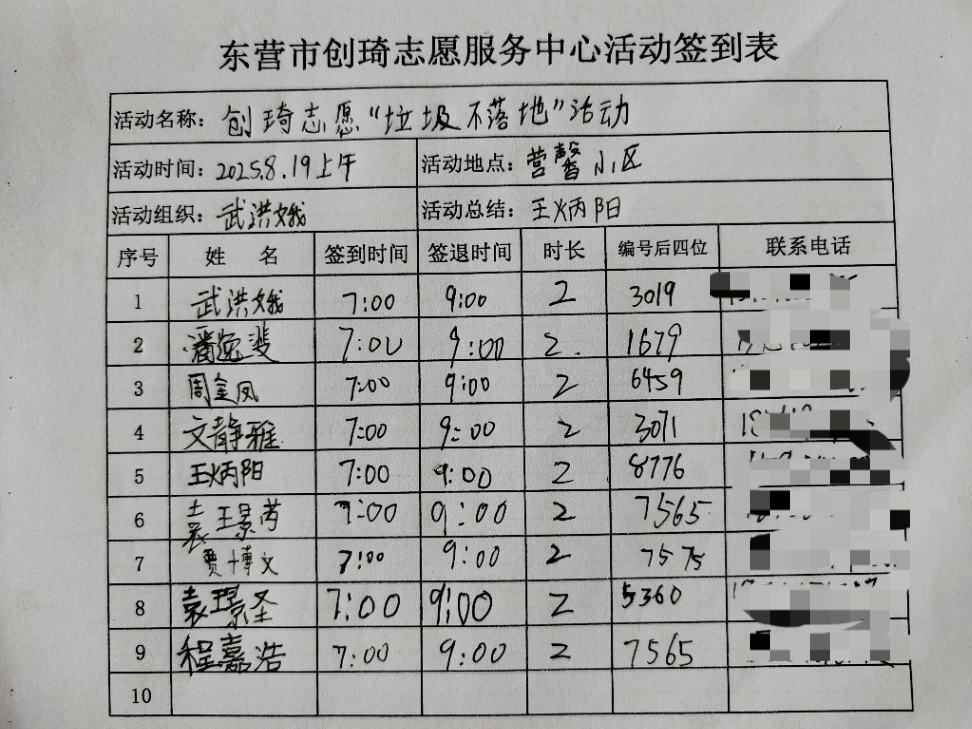 东营市创琦志愿服务中心活动签到表
活动名称：创琦志愿“垃圾不落地”活动
活动时间：2025.8.19上午 活动地点：营馨小区
活动组织：武洪娥 活动总结：王炳阳
序号 姓名 签到时间 签退时间 时长 编号后四位 联系电话
1 武洪娥 7:00 9:00 2 3019
2 潘逸斐 7:00 9:00 2. 1679
3 周金凤 7:00 9:00 2 6459
4 文静雅 7:00 9:00 2 3071
5 王炳阳 7:00 9:00 2 8776
6 袁璟芮 7:00 9:00 2 7565
7 贾博文 7:00 9:00 2 7575
8 袁璟圣 7:00 9:00 2 5360
9 程嘉浩 7:00 9:00 2 7565
10